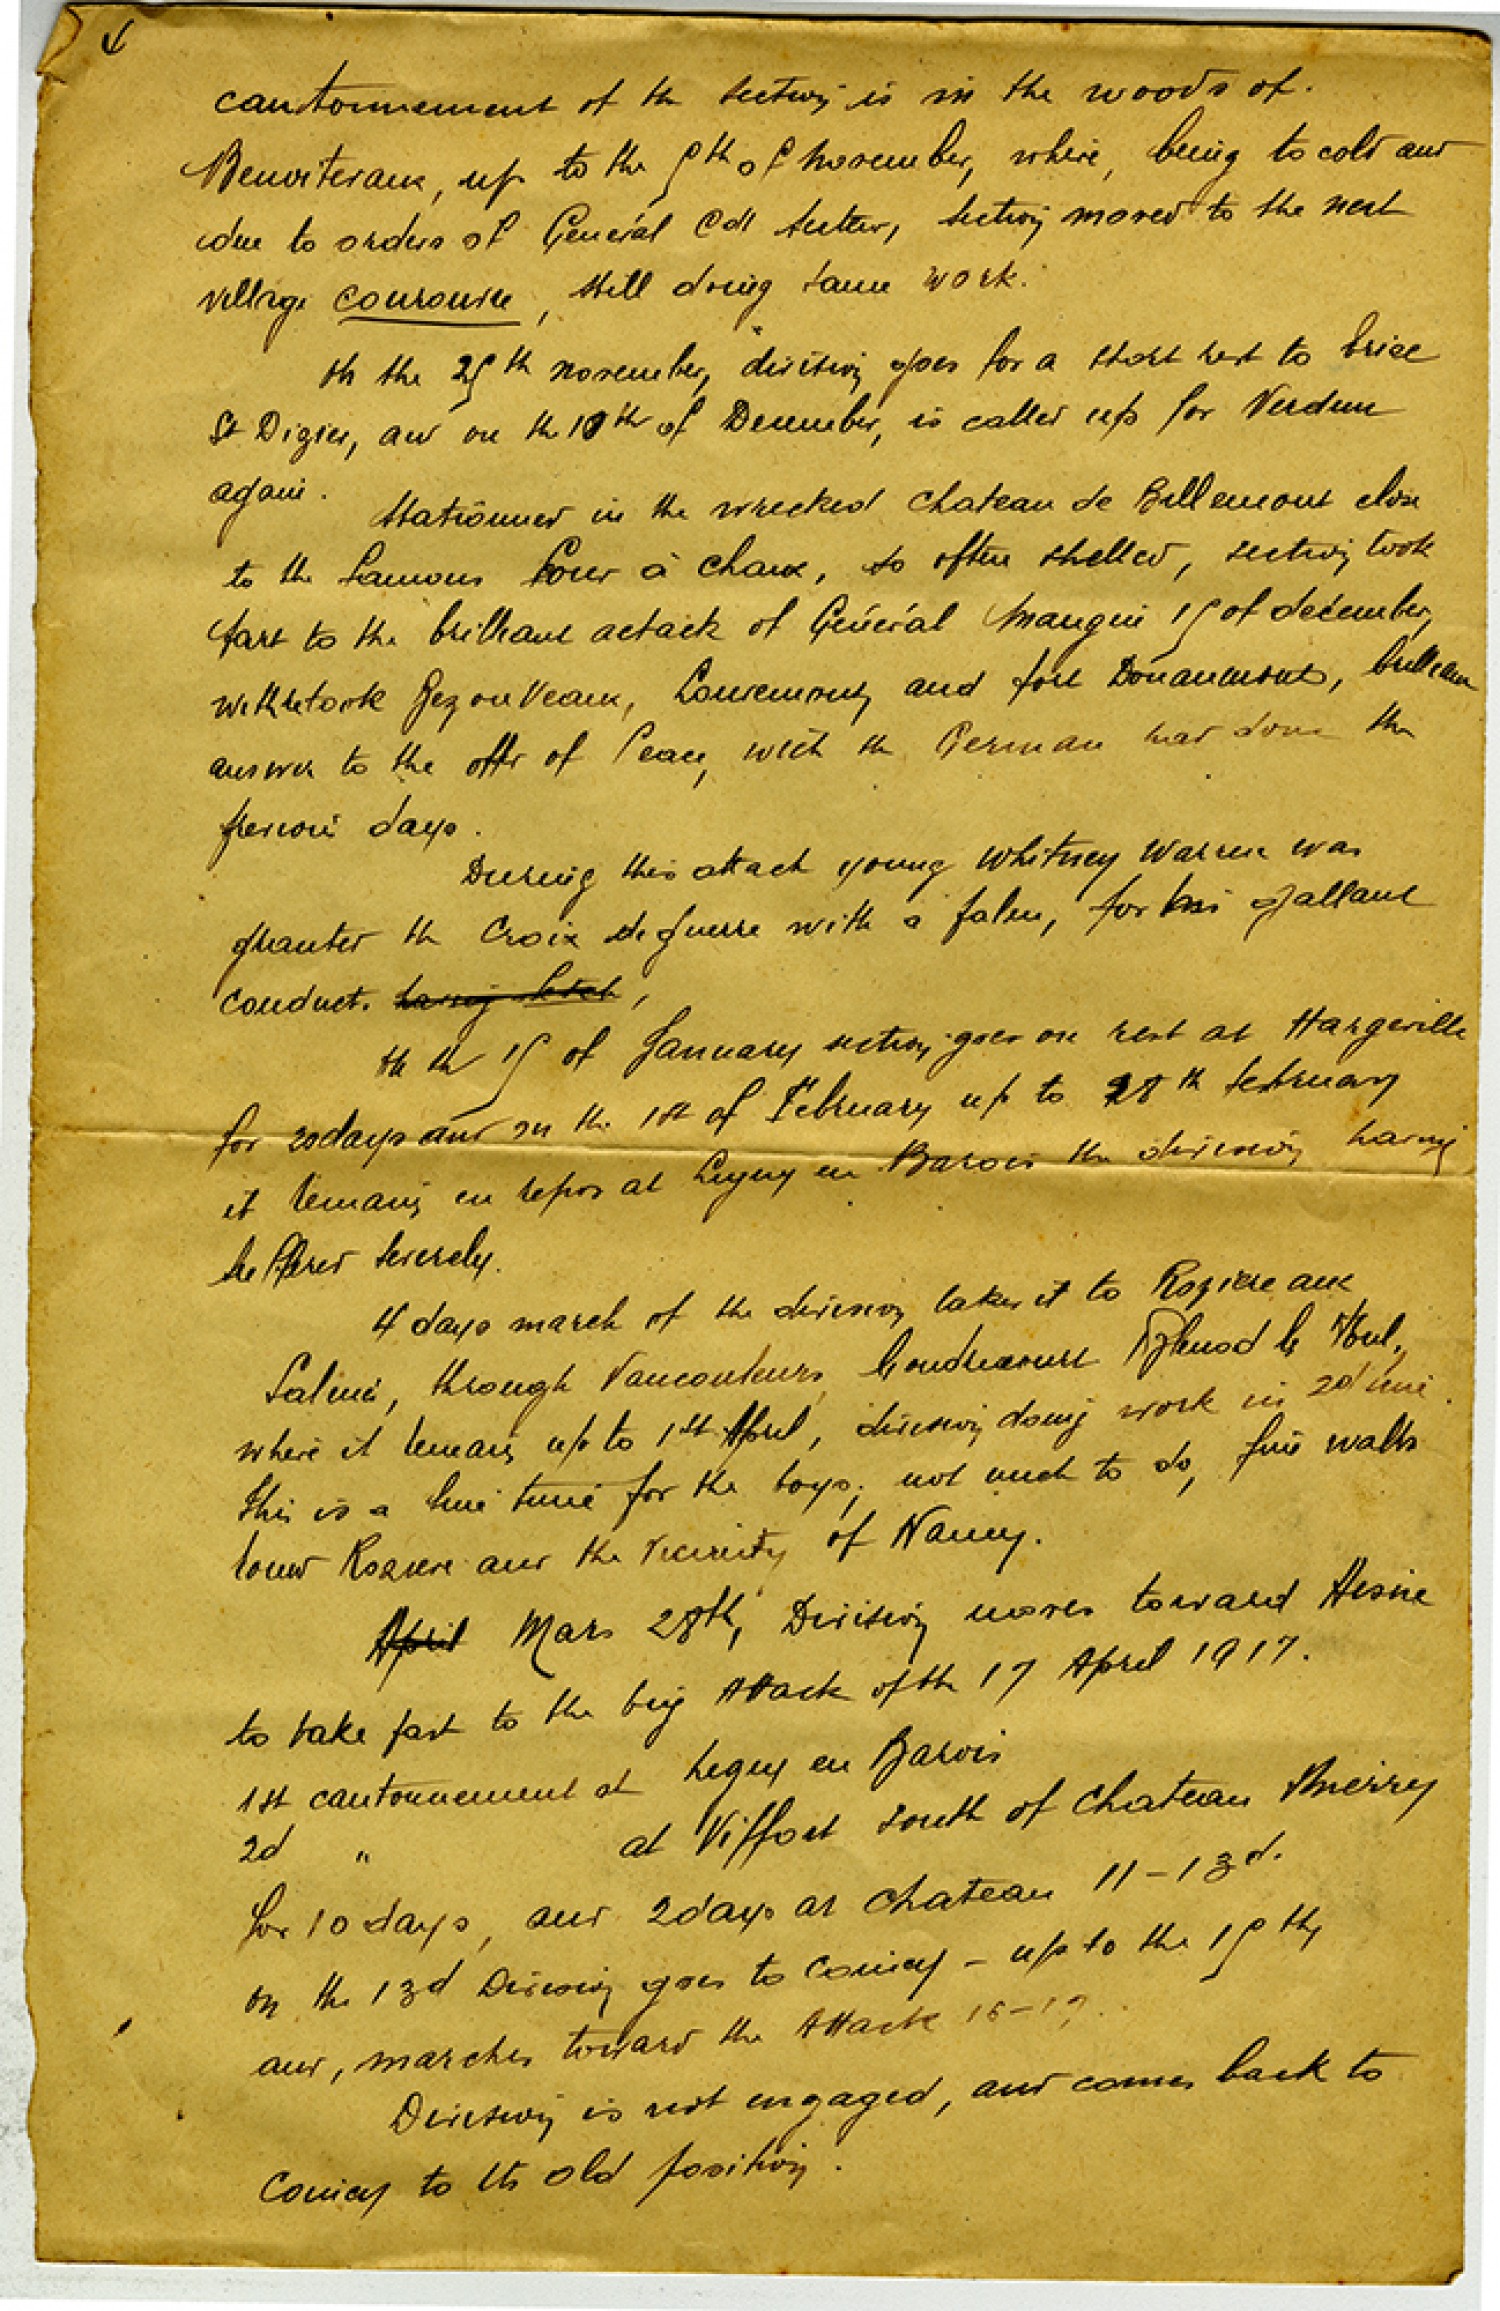 cantonnement of the section is in the woods of.
Benoitevaux, up to the 5th of November, where, being to cold and
due to orders of Général Cdt secteur, section moved to the next
village courouvre, still doing same work.
th the 25th november, division goes for a short rest to
St Dizier, and on the 10th of December, is called up for Verdun
again. Stationned in the wrecked chateau de Billemont close
to the famous Four à chaux, so often shelled, section took
part to the brilliant attack of Général Mangin 15 of december,
Bezonveaux, Louvemont, and fort Douaumont, brilliant
answer to the offer of Peace, with the German had done the
previous days.
During this attack young Whitney Warren was
granted the Croix de guerre with a palm, for his gallant
conduct. having fetch,
th th 15 of January section goes on rest at Hargeville
for 20 days and on the 1st of February up to 28th february
it remains en repos at Ligny en Barois the division having
suffered severely.
4 days march of the division takes it to Rozière aux
Salines, through Vaucouleurs, Goudrecourt Blenod le Toul,
where it remains up to 1st April, division doing work in 2d line.
this is a fine time for the boys, not much to do, fine walks
round Roziere and the vicinity of Nancy.
April Mars 28th, Division moves toward Aisne
to take part to the big Attack of the 17 April 1917.
1st cantonnement at Ligny en Barois
2d " at Viffort south of Chateau Thierry
for 10 days, and 2 days at chateau 11-13d.
on the 13d Division goes to Conicy - up to the 15th,
and, marches toward the Attack 16-17.
Division is not engaged, and comes back to
Conicy to its old position.